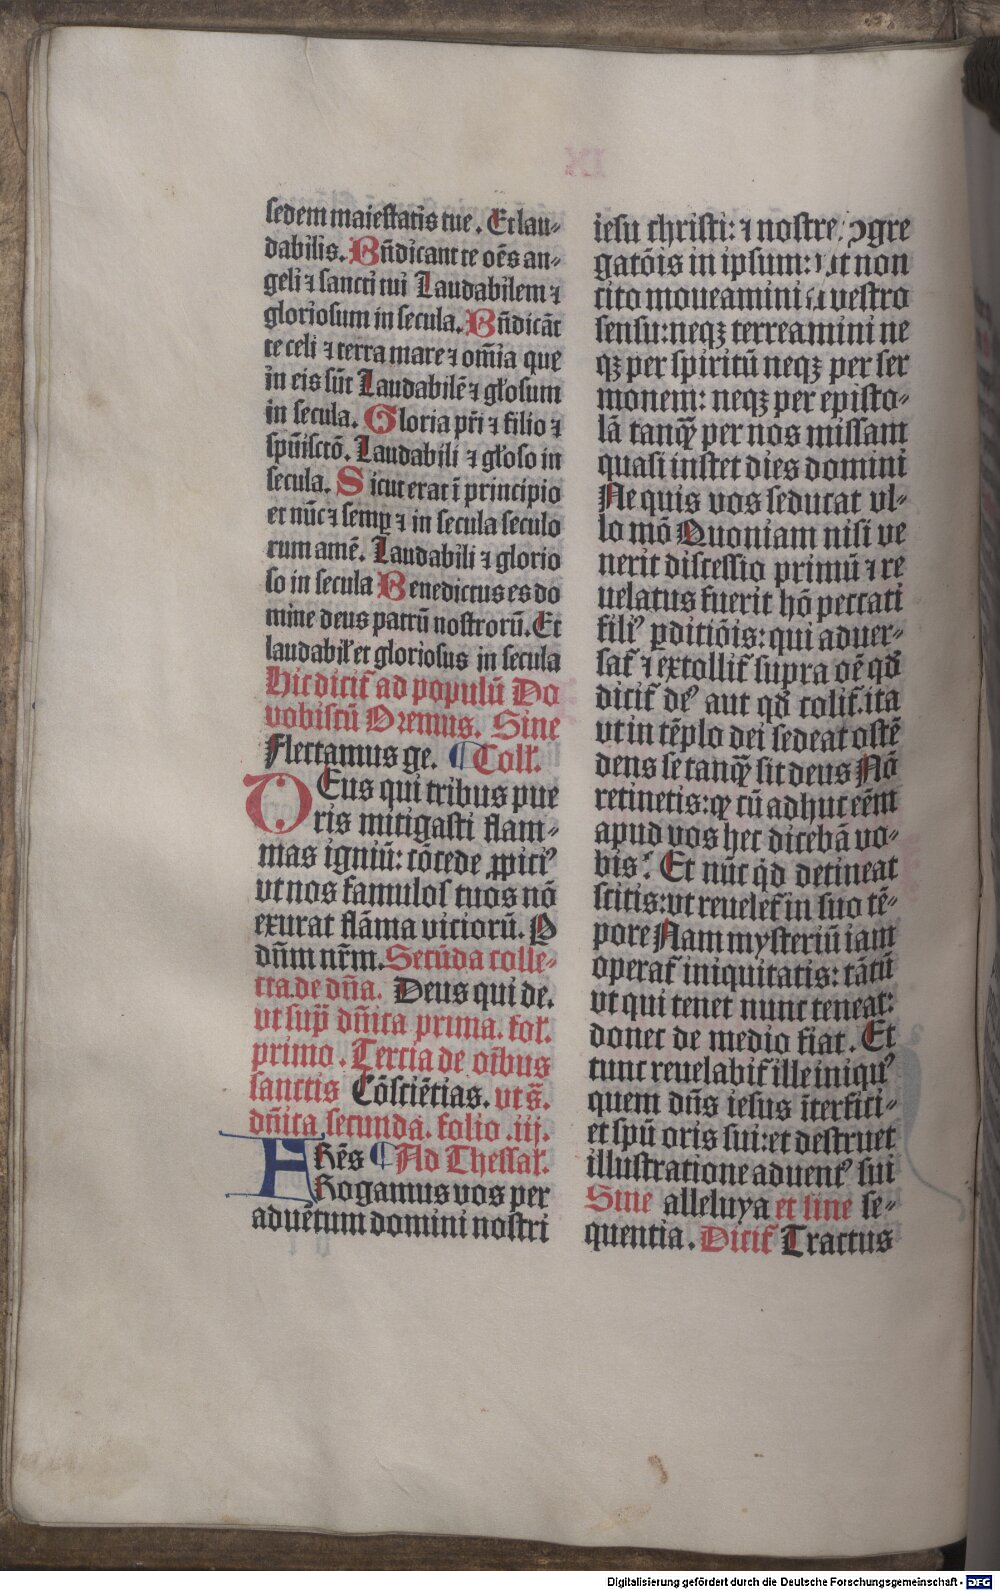 sedem maiestatis tue. Et lau-
dabilis. Bn̄dicant te oēs an-
geli ⁊ sancti tui Laudabilem ⁊
gloriosum in secula. Bn̄dicāt
te celi ⁊ terra mare ⁊ om̄ia que
in eis sūt Laudabilē ⁊ gl'osum
in secula. Gloria pr̄i ⁊ filio ⁊
spūiscto̅. Laudabili ⁊ gl'oso in
secula. Sicut erat ī principio
et nūc ⁊ semꝑ ⁊ in secula seculo
rum amē. Laudabili ⁊ glorio
so in secula Benedictus es do
mine deus patrū nostrorū. Et
laudabil' et gloriosus in secula
Hic dicit̄ ad populū Do
vobiscū Oremus. Sine
Flectamus ge. ¶Coll'.
DEus qui tribus pue
ris mitigasti flam-
mas igniū: cōcede ꝓpiciꝰ
vt nos famulos tuos nō
exurat flāma viciorū. P
dn̄m nr̄m. Secūda colle-
cta. de dn̄a. Deus qui de.
vt sup̄ dn̄ica prima. fol'.
primo. Tercia de oībus
sanctis Cōsciētias. vt s̄.
dn̄ica secunda. folio .iij.
FRēs ¶Ad Thessal'.
Rogamus vos per
aduētum domini nostri
iesu christi: ⁊ nostre ꝯgre
gatōis in ipsum: vt non
cito moueamini a vestro
sensu: neqꝫ terreamini ne
qꝫ per spiritū neqꝫ per ser
monem: neqꝫ per episto-
lā tanqꝫ̄ per nos missam
quasi instet dies domini
Ne quis vos seducat vl-
lo mō Quoniam nisi ve
nerit discessio primū ⁊ re
uelatus fuerit hō peccati
filiꝰ ꝑditiōis: qui aduer-
sat̄ ⁊ extollit̄ supra oē qd̄
dicit̄ deꝰ aut qd̄ colit̄. ita
vt in tēplo dei sedeat ostē
dens se tanqꝫ̄ sit deus Nō
retinetis: ꝙ cū adhuc eēm
apud vos hec dicebā vo-
bis? Et nūc qͥd detineat
scitis: vt reuelet̄ in suo tē-
pore Nam mysteriū iam
operat̄ iniquitatis: tātū
vt qui tenet nunc teneat:
donec de medio fiat. Et
tunc reuelabit̄ ille iniquꝰ
quem dn̄s iesus īterfici-
et spū oris sui: et destruet
illustratione aduentꝰ sui
Sine alleluya et sine se-
quentia. Dicit̄ Tractus
Digitalisierung gefördert durch die Deutsche Forschungsgemeinschaft - DFG